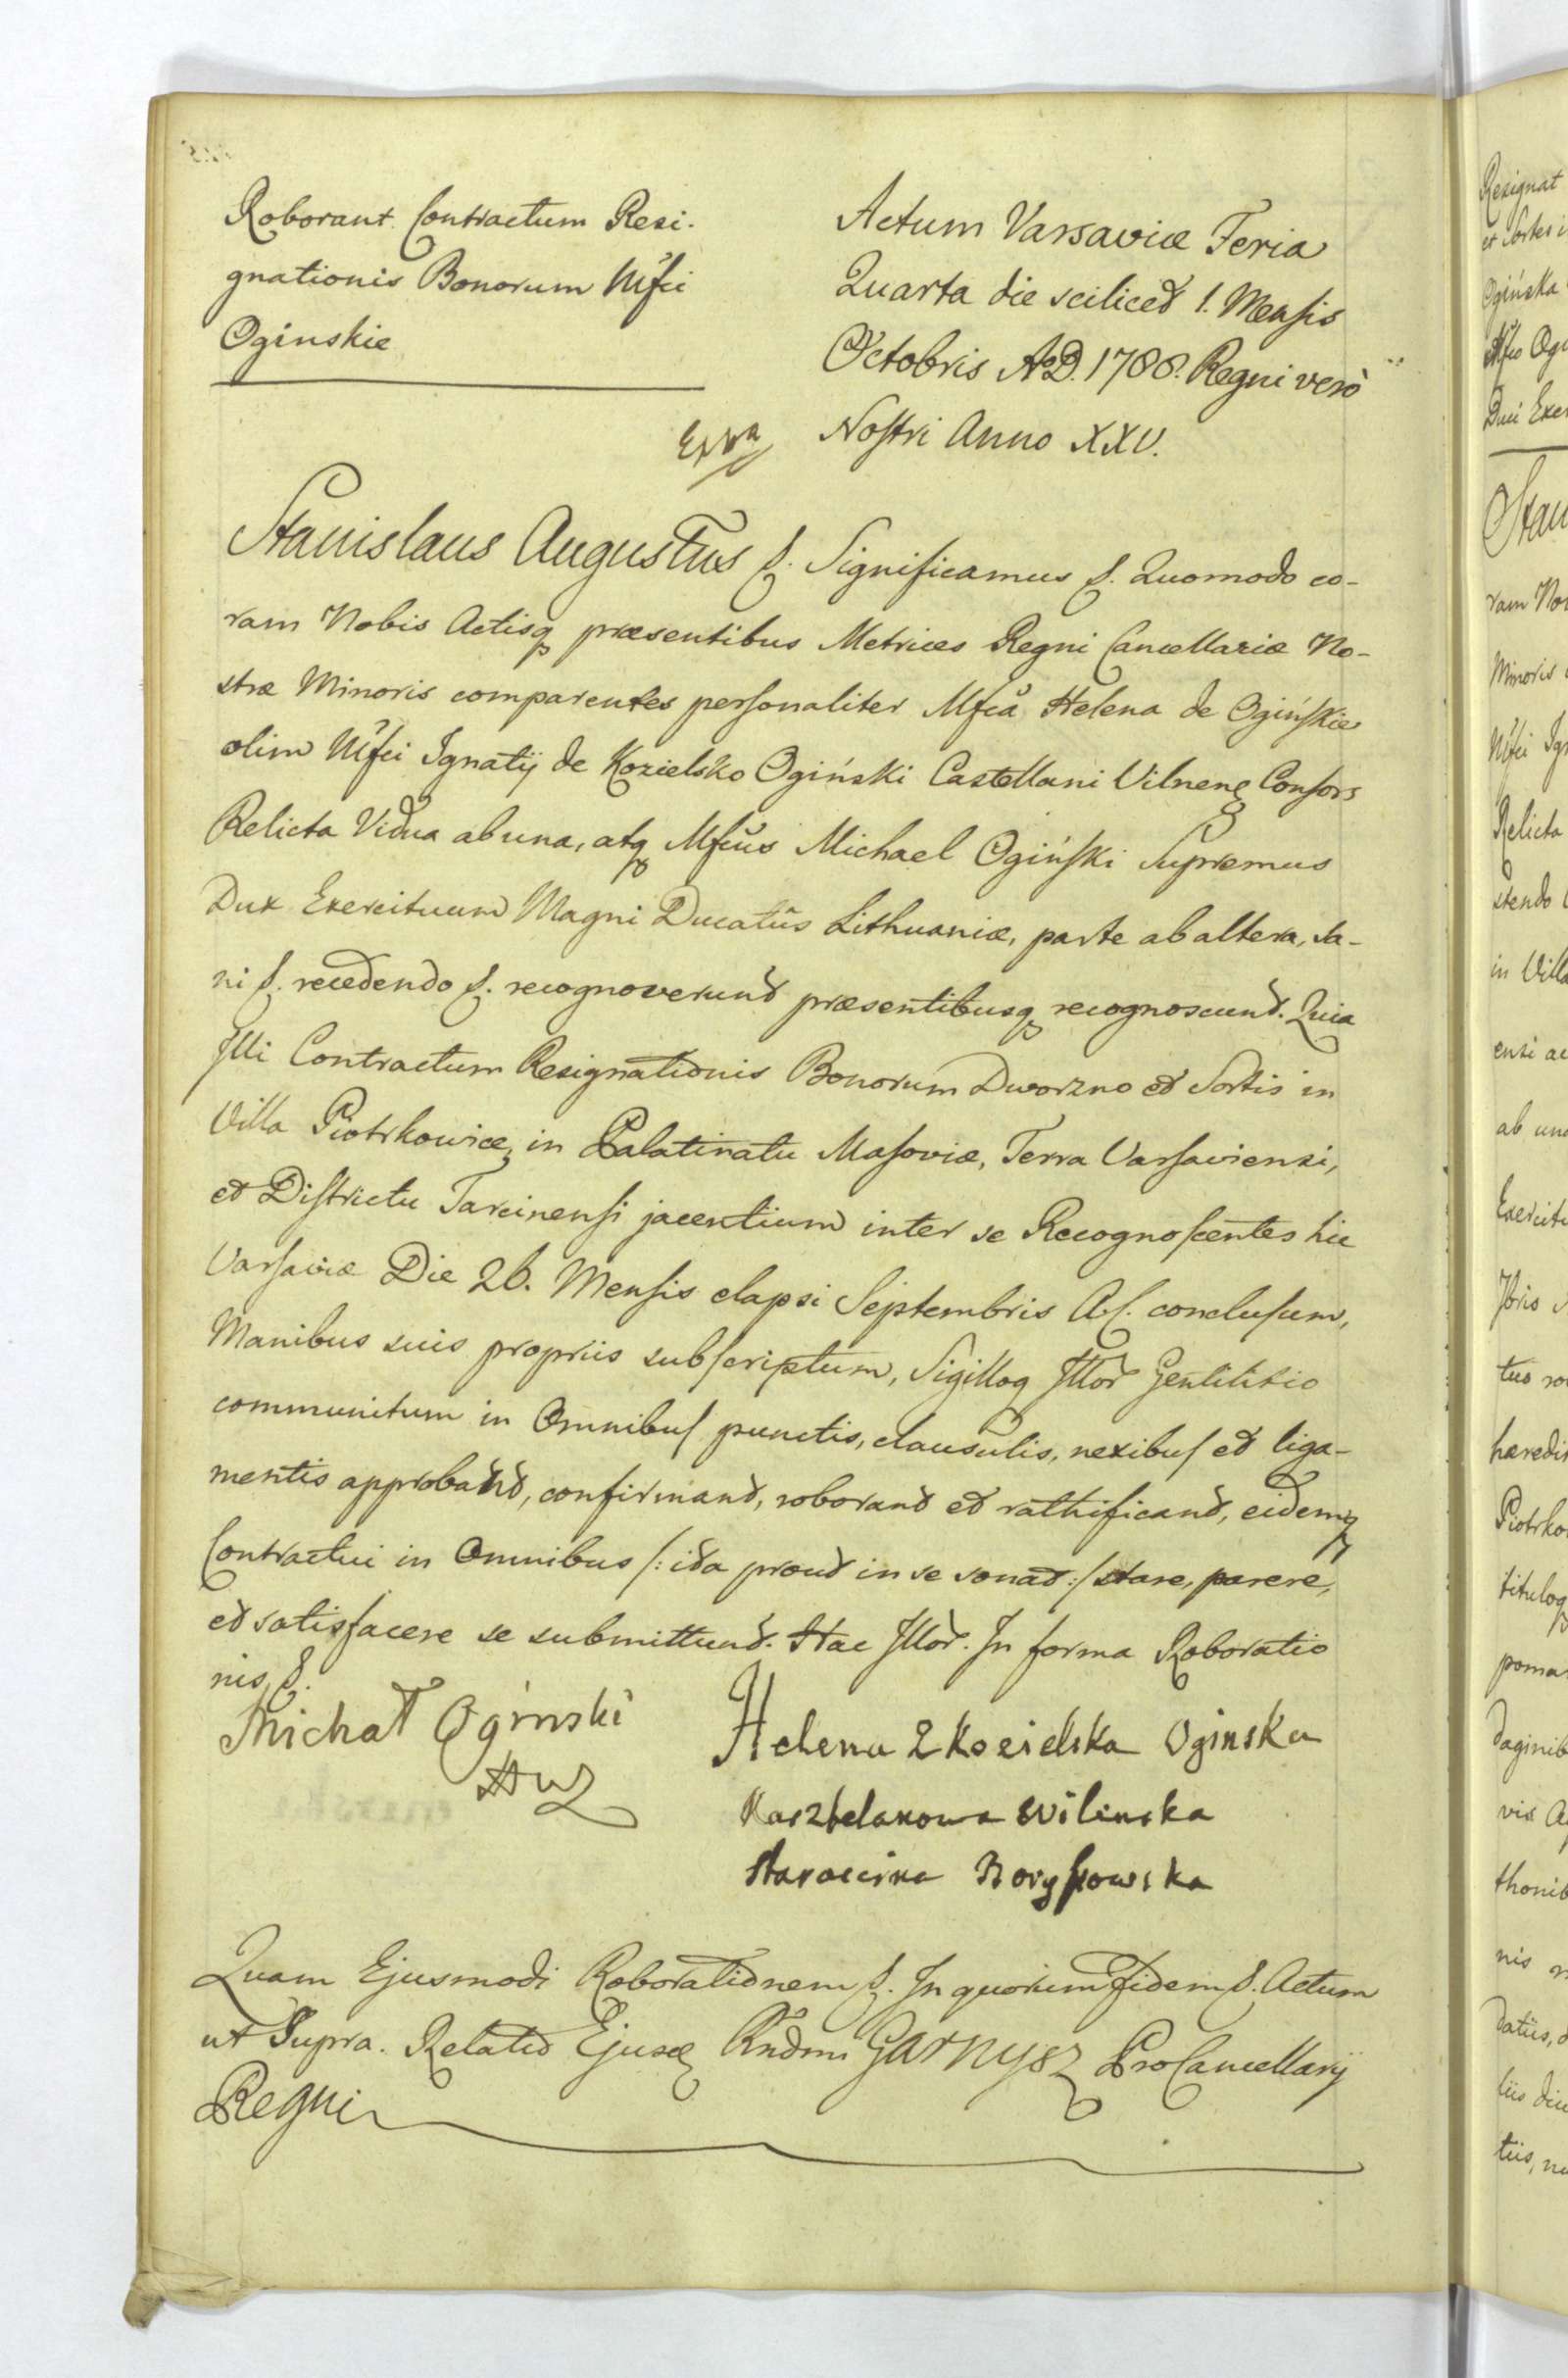 Roborant Contractum Resi-
gnationis Bonorum Mfci
Oginskie
Actum Varsaviæ Feria
Quarta die scilicet 1. Mensis
Octobris A.D. 1788. Regni verò
Nostri Anno XXV.
Stanislaus Augustus &. Significamus &. Quomodo co-
ram Nobis Actisq præsentibus Metrices Regni Cancellariæ No-
stræ Minoris comparentes personaliter Mfca Helena de Ogińskie
olim Mfci Ignatij de Kozielsko Ogiński Castellani Vilnens Consors
Relicta Vidua ab una, atq Mfcus Michael Ogiński Supremus
Dux Exercituum Magni Ducatûs Lithuaniæ, parte ab altera, sa-
ni &. recedendo &. recognoverunt præsentibusq recognoscunt. Quia
Illi Contractum Resignationis Bonorum Dworzno et Sortis in
Villa Piotrkowice, in Palatinatu Masoviæ, Terra Varsaviensi,
et Districtu Tarcinensi jacentium inter se Recognoscentes hic
Varsaviæ Die 26. Mensis elapsi Septembris A.C. conclusum,
Manibus suis propriis subscriptum, Sigilloq Illor Gentilitio
communitum in Omnibus punctis, clausulis, nexibus et liga-
mentis approband, confirmand, roborand et rathificand, eidemq
Contractui in Omnibus /: ita prout in se sonat :/ stare, parere,
et satisfacere se submittunt. Hac Illor. In forma Roboratio
nis &.
Michał Ogiński
HWL
Helena z Kozielska Oginska
Kasztelanowa Wilinska
Staroscina Borysowska
Quam Ejusmodi Roborationem &. In quorum Fidem &. Actum
ut Supra. Relatio Ejusd Rndmi Garnysz ProCancellarij
Regni
Resignat
et Sortes i
Ogińska
Mfco Ogi
Duci Exer
Stan
ram No
Minoris
Mfci Ig
Relicta
stendo
in Villa
ensi
ab una
Exercitu
hæredi
Piotrko
tituloq